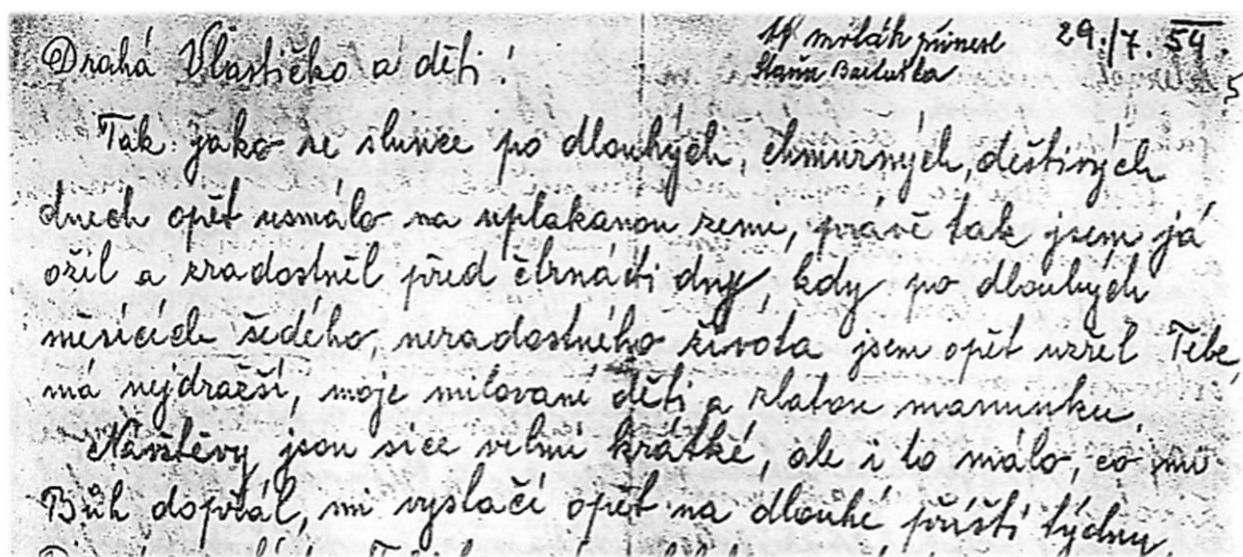 Drahá Vlastičko a děti!
29./7. 54.
přinesl
Tak jako se slunce po dlouhých, chmurných, deštivých
dnech opět usmálo na uplakanou zemi, právě tak jsem já
ožil a zradostněl před čtrnácti dny, kdy po dlouhých
měsících šedého, neradostného života jsem opět uzřel Tebe,
má nejdražší, moje milované děti a zlatou maminku.
Návštěvy jsou sice velmi krátké, ale i to málo, co mi
Bůh dopřál, mi vystačí opět na dlouhé příští týdny